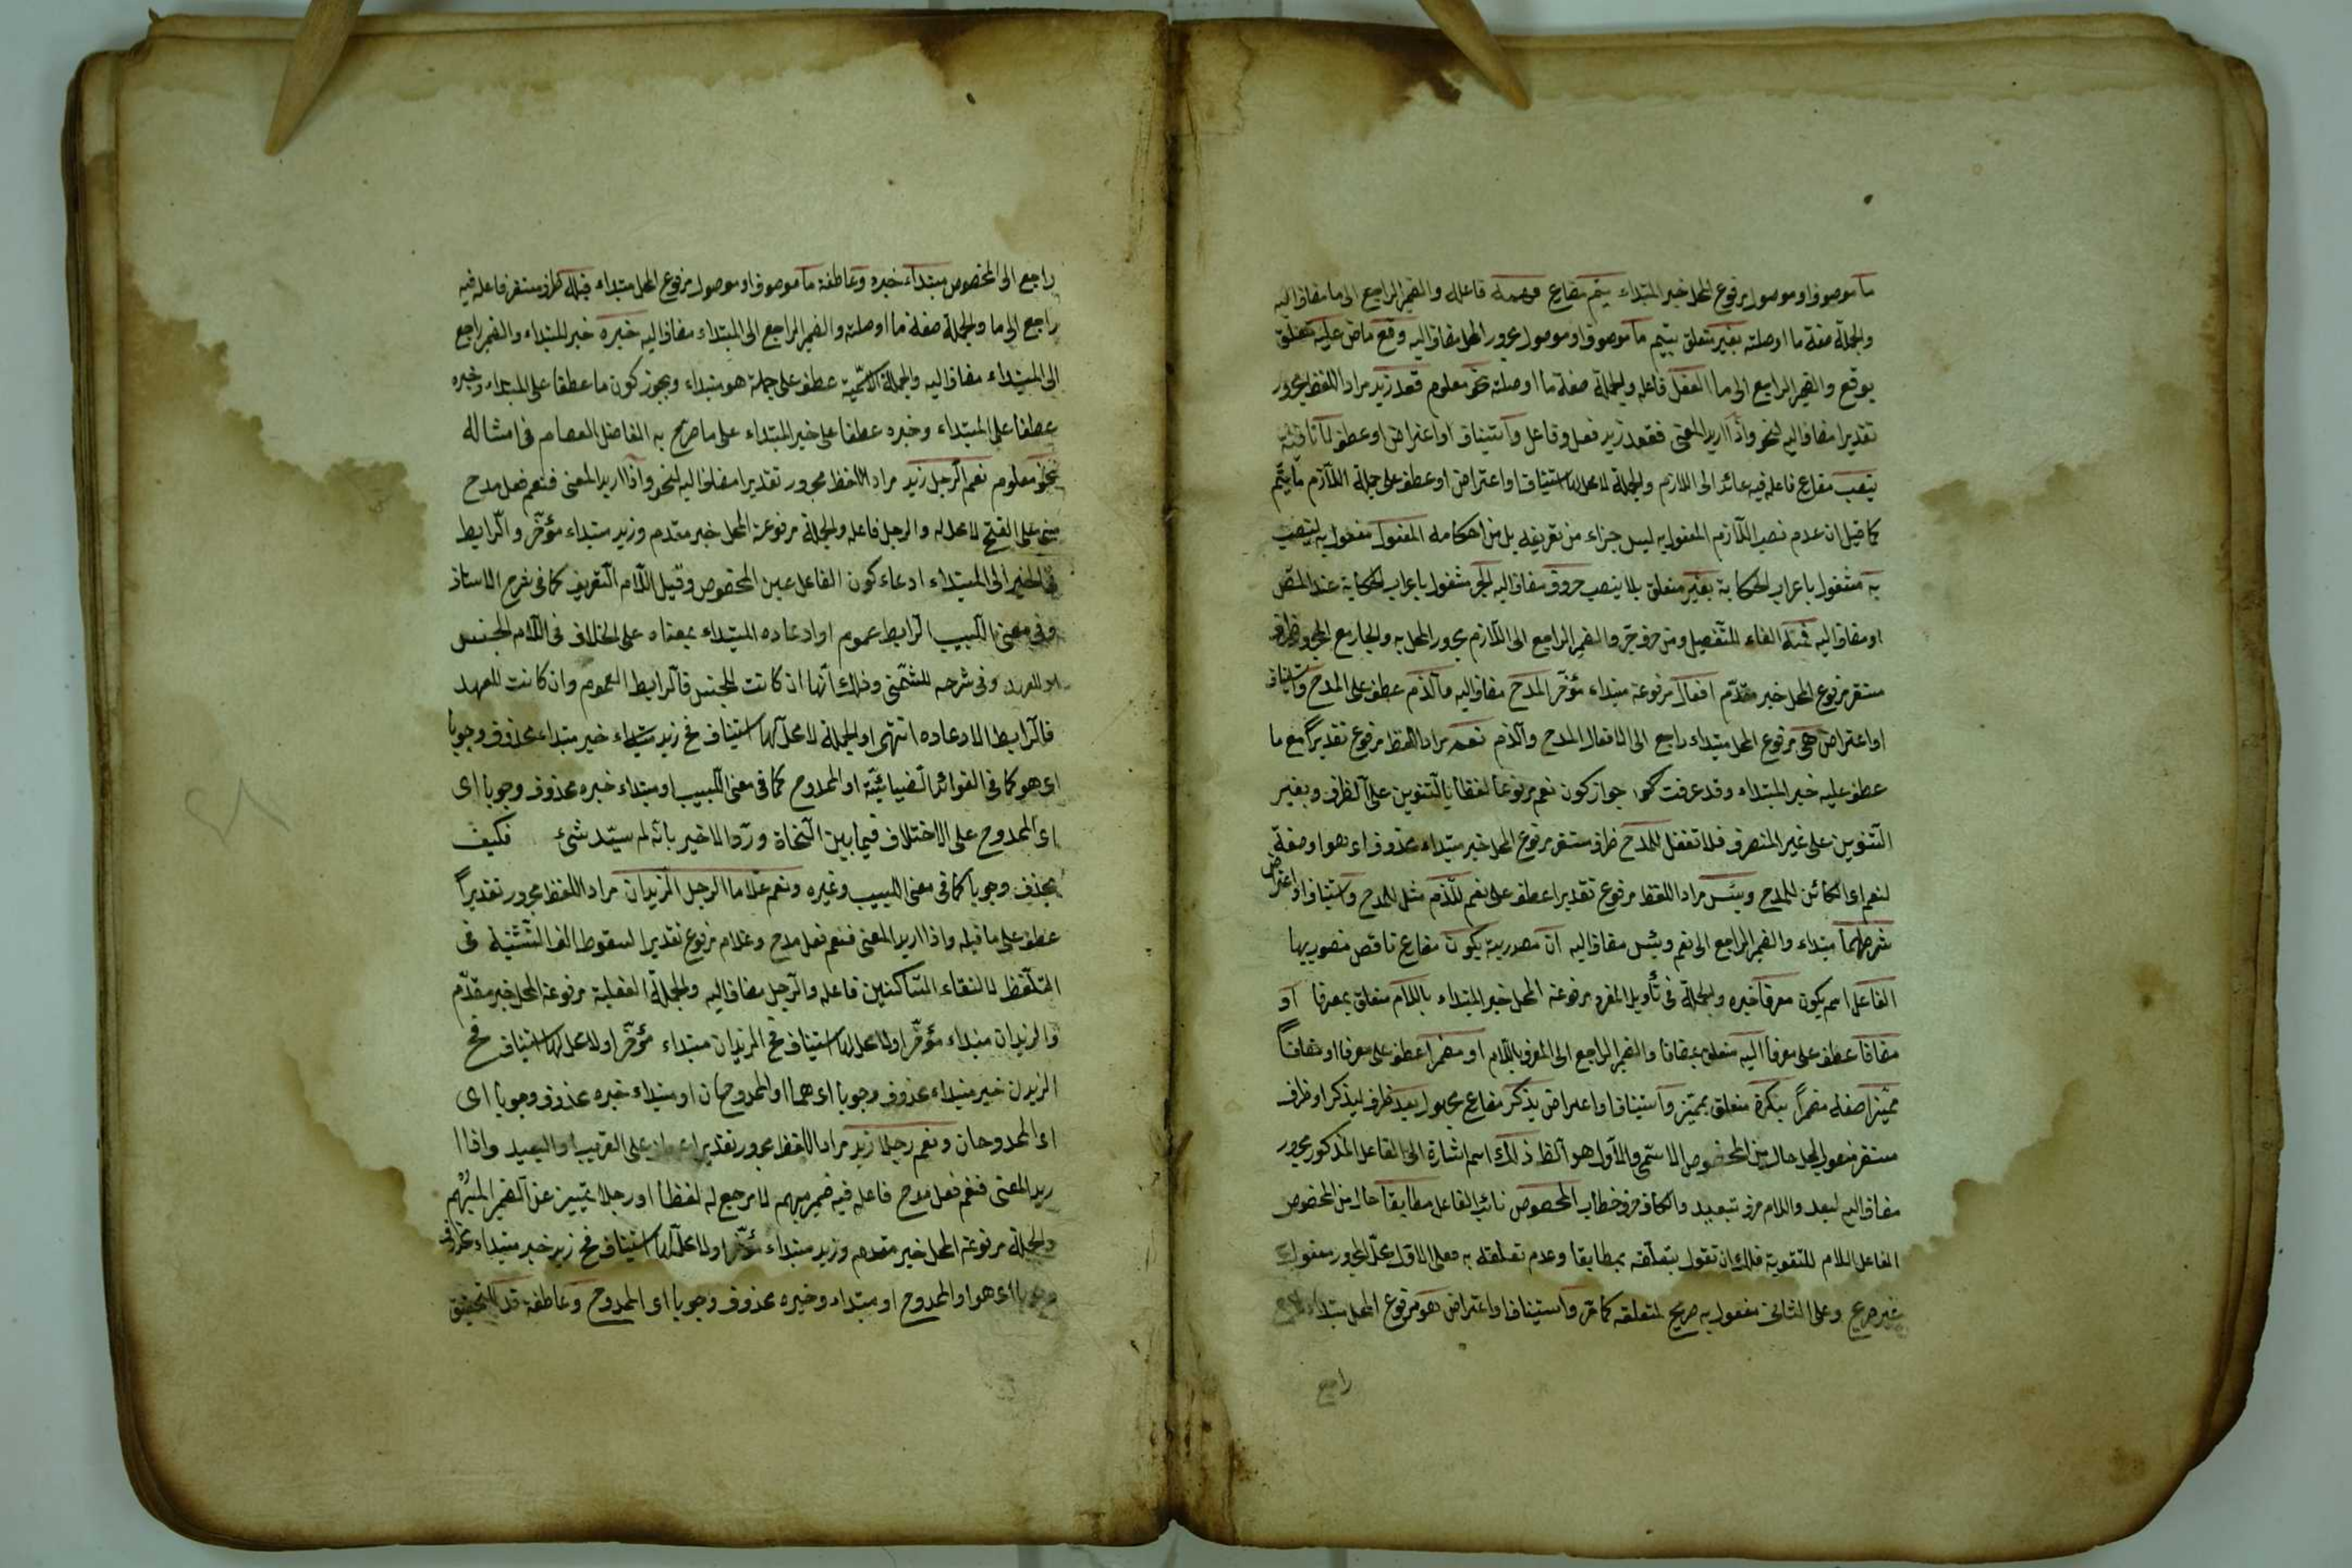 ما موصوف او موصول مرفوع المحل خبر المبتداء يتم مضارع فهمه فاعله والضمير الراجع الى ما مضاف اليه
والجملة صفة ما او صلته بغير متعلق بيتم ما موصوف او موصول مجرور المحل مضاف اليه وقع ماض عليه متعلق
بوقع والضمير الراجع الى ما الفعل فاعله والجملة صفة ما او صلته نحو معلوم قعد زيد مراد اللفظ مجرور
تقديرا مضاف اليه لنحو واذا اريد المعنى فقعد زيد فعل وفاعل وا ستيناف او اعتراض او عطف لا نافية
ينصب مضارع فاعله فيه عائد الى اللازم والجملة لا محل لها استيناف او اعتراض او عطف على جملة اللازم ما يتم
كما قيل ان عدم نصب اللازم المفعول به ليس جزاء من تعريفه بل من احكامه المفعول مفعول به لينصب
به مشغول باعراب الحكاية بغير متعلق بلا ينصب حروف مضاف اليه الجر مشغول باعراب الحكاية عند المص
او مضاف اليه فمنه الفاء للتفصيل ومن حرف جر والضمير الراجع الى اللازم مجرور المحل به والجار مع المجرور ظرف
مستقر مرفوع المحل خبر مقدم افعال مرفوعة مبتداء مؤخر المدح مضاف اليه والذم عطف على المدح واستيناف
او اعتراض هى مرفوع المحل مبتداء راجع الى الافعال المدح والذم نعم مراد اللفظ مرفوع تقديرا مع ما
عطف عليه خبر المبتداء وقد عرفت جواز كون نعم مرفوعا لفظا بالتنوين على الظرف وبغير
التنوين على غير المنصرف فلا تغفل للمدح ظرف مستقر مرفوع المحل خبر مبتداء محذوف اى هو او صفة
لنعم اى الكائن للمدح وبئس مراد اللفظ مرفوع تقديرا عطف على نعم للذم مثل للمدح واستيناف او اعتراض
شرطهما مبتداء والضمير الراجع الى نعم وبئس مضاف اليه ان مصدرية يكون مضارع ناقص منصوب بها
الفاعل اسم يكون معرفا خبره والجملة فى تأويل المفرد مرفوعة المحل خبر المبتداء باللام متعلق بمعرفا او
مضافا عطف على معرفا اليه متعلق بمضافا والضمير الراجع الى المعرف باللام او مضمرا عطف على معرفا او مضافا
مميزا صفة مضمرا بنكرة متعلق بمميز واستيناف او اعتراض يذكر مضارع مجهول بعد ظرف ليذكر او ظرف
مستقر منصوب المحل حال من المخصوص الاسمى والاول هو الظ ذلك اسم اشارة الى الفاعل المذكور مجرور
مضاف اليه لبعد واللام حرف تبعيد والكاف حرف خطاب المخصوص نائب الفاعل مطابقا حال من المخصوص
الفاعل اللام للتقوية فلك ان تقول بتعلقه بمطابقا وعدم تعلقه به فعلى الاول محل المجرور مفعول به
غير صريح وعلى الثانى مفعول به صريح لمتعلقه كما مر واستيناف او اعتراض هو مرفوع المحل مبتداء
راجع
راجع الى المخصوص مبتداء خبره وعاطفة ما موصوف او موصول مرفوع المحل مبتداء قبله ظرف مستقر فاعله فيه
راجع الى ما والجملة صفة ما او صلته والضمير الراجع الى المبتداء مضاف اليه خبره خبر للمبتداء والضمير راجع
الى المبتداء مضاف اليه والجملة الاسمية عطف على جملة هو مبتداء ويجوز كون ما عطفا على المبتداء وخبره
عطفا على المبتداء وخبره عطفا على خبر المبتداء على ما صرح به الفاضل العصام فى امثاله
نحو معلوم نعم الرجل زيد مراد اللفظ مجرور تقديرا مضاف اليه لنحو واذا اريد المعنى فنعم فعل مدح
مبنى على الفتح لا محل له والرجل فاعله والجملة مرفوعة المحل خبر مقدم وزيد مبتداء مؤخر والرابط
فى الخبر الى المبتداء ادعاء كون الفاعل عين المخصوص وقيل اللام التعريف كما فى شرح الاستاذ
وفى معنى اللبيب الرابط عموم او ادعاده المبتداء بمعناه على الخلاف فى اللام الجنس
او للعهد وفى شرحه للشمنى وذلك انها ان كانت للجنس فالرابط العموم وان كانت للعهد
فالرابط الادعاده انتهى او الجملة لا محل لها استيناف فح زيد مبتداء خبر مبتداء محذوف وجوبا
اى هو كما فى الفوائد الضيائية او الممدوح كما فى معنى اللبيب او مبتداء خبره محذوف وجوبا اى
اى الممدوح على الاختلاف فيما بين النحاة وردوا الاخير بانه لم سيتد شئ فكيف
يحذف وجوبا كما فى معنى اللبيب وغيره ونعم غلاما الرجل الزيدان مراد اللفظ مجرور تقديرا
عطف على ما قبله واذا اريد المعنى فنعم فعل مدح وغلام مرفوع تقديرا لسقوط الف التثنية فى
التلفظ لالتقاء الساكنين فاعله والرجل مضاف اليه والجملة الفعلية مرفوعة المحل خبر مقدم
والزيدان مبتداء مؤخر او لا محل لها استيناف فح الزيدان مبتداء مؤخر او لا محل لها استيناف فح
الزيدن خبر مبتداء محذوف وجوبا اى هما او الممدوحان او مبتداء خبره محذوف وجوبا اى
اى الممدوحان ونعم رجلا زيد مراد اللفظ مجرور تقديرا على القريب او البعيد واذا ا
ريد المعنى فنعم فعل مدح فاعله فيه ضمير مبهم لا مرجع له لفظا او رجلا تمييز عن الضمير المبهم
والجملة مرفوعة المحل خبر مقدم وزيد مبتداء مؤخر او لا محل لها استيناف فح زيد خبر مبتداء محذوف
وجوبا اى هو او الممدوح او مبتداء وخبره محذوف وجوبا اى الممدوح وعاطفة قد للتحقيق